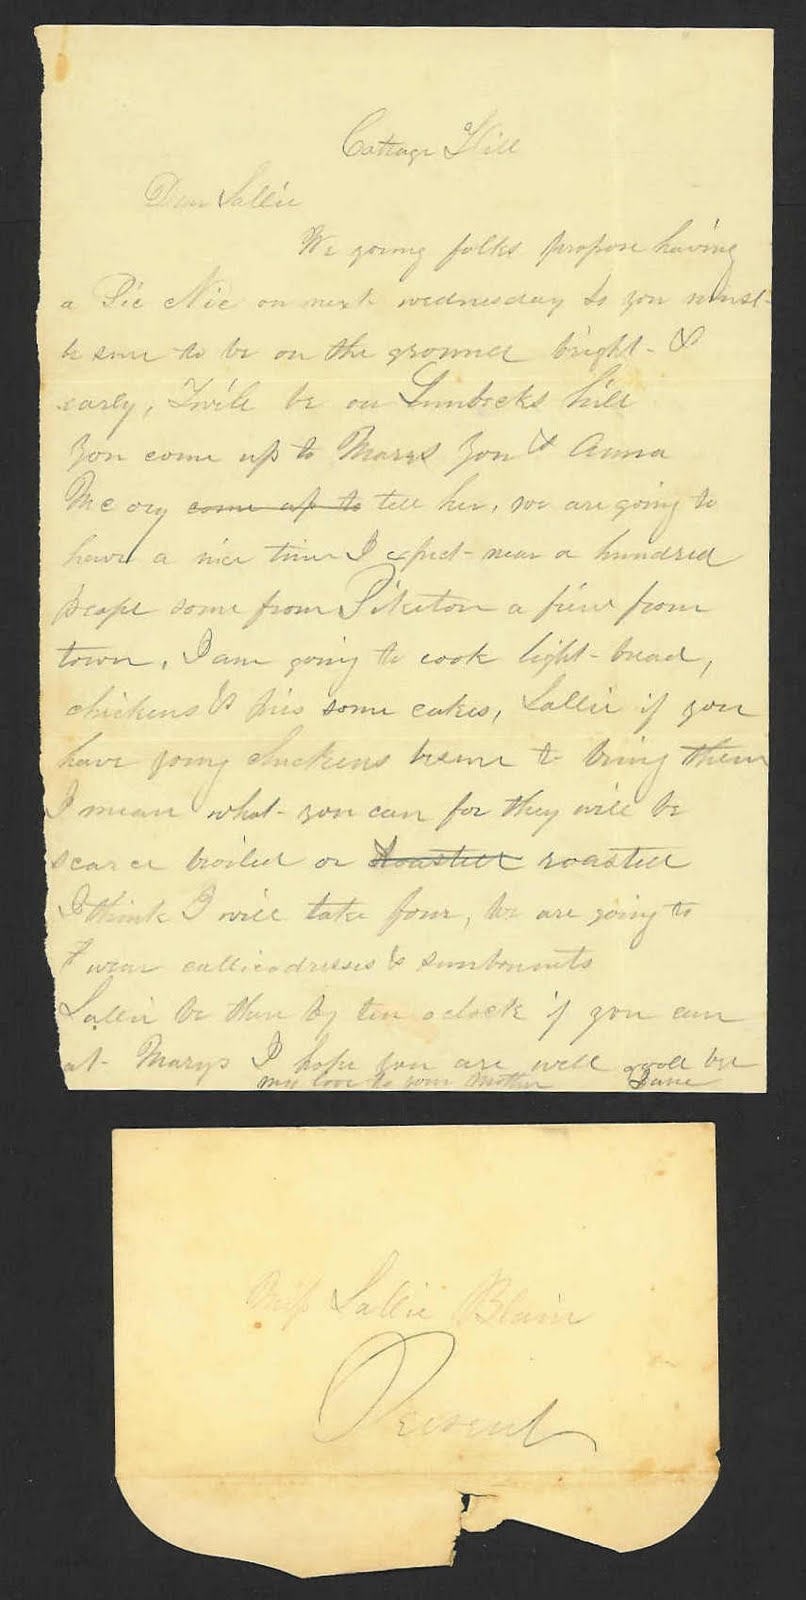 Cottage Hill
Dear Sallie
We young folks propose having
a Pic Nic on next wednesday so you must
be sure to be on the ground bright &
early, I will be on hill
You come up to Marys You & Anna
come up to tell her, we are going to
have a nice time I expect near a hundred
people some from Piketon a few from
town, I am going to cook light bread,
chickens & pies some cakes, Sallie if you
have young chickens besure to bring them
I mean what you can for they will be
scarce broiled or roasted
I think I will take four, We are going to
wear callico dresses & sunbonnets
Sallie be there by ten oclock if you can
at Marys I hope you are well good bye
my love to your Mother Jane
Miss Sallie Blair
Present